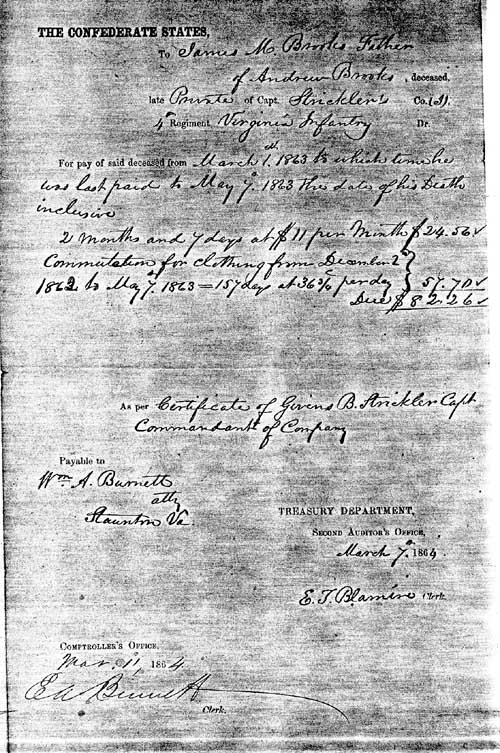 THE CONFEDERATE STATES,
To James M. Brooks Father
of Andrew Brooks, deceased,
late Private of Capt. Strickler's Co. (I).
4th Regiment Virginia Infantry Dr.
For pay of said deceased from March 1st, 1863 to which time he
was last paid to May 7th, 1863 the date of his Death
inclusive
2 Months and 7 days at $11 per Month $24.56
Commutation for clothing from December 2d
1862 to May 7th, 1863 = 157 days at 36 3/4 per day } 57.70
Due $82.26
As per Certificate of Givens B. Strickler Capt
Commandant of Company
Payable to
Wm. A. Burnett
atty
Staunton Va.
TREASURY DEPARTMENT,
SECOND AUDITOR'S OFFICE,
March 7th, 1864
E. T. Blamire Clerk.
COMPTROLLER'S OFFICE,
Mar. 11, 1864
E A Bennett
Clerk.